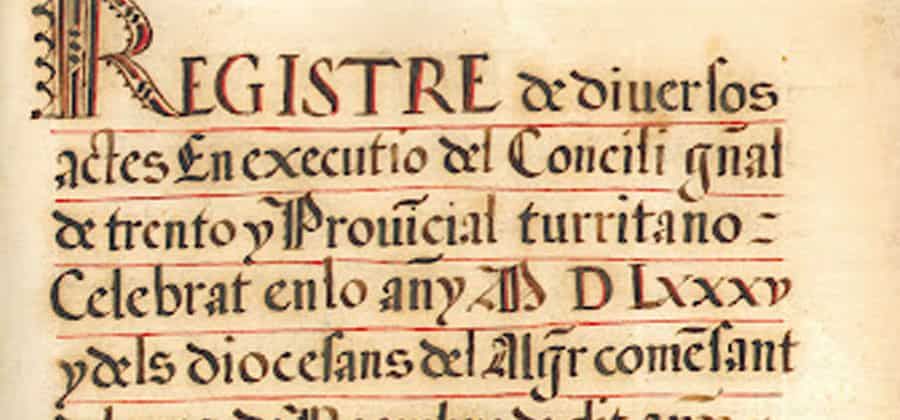 REGISTRE de diuersos
actes En executio del Concili gñal
de trento y Prouĩcial turritano =
Celebrat en lo añy M D Lxxxv
y dels diocesans del Algr̃ comẽsant